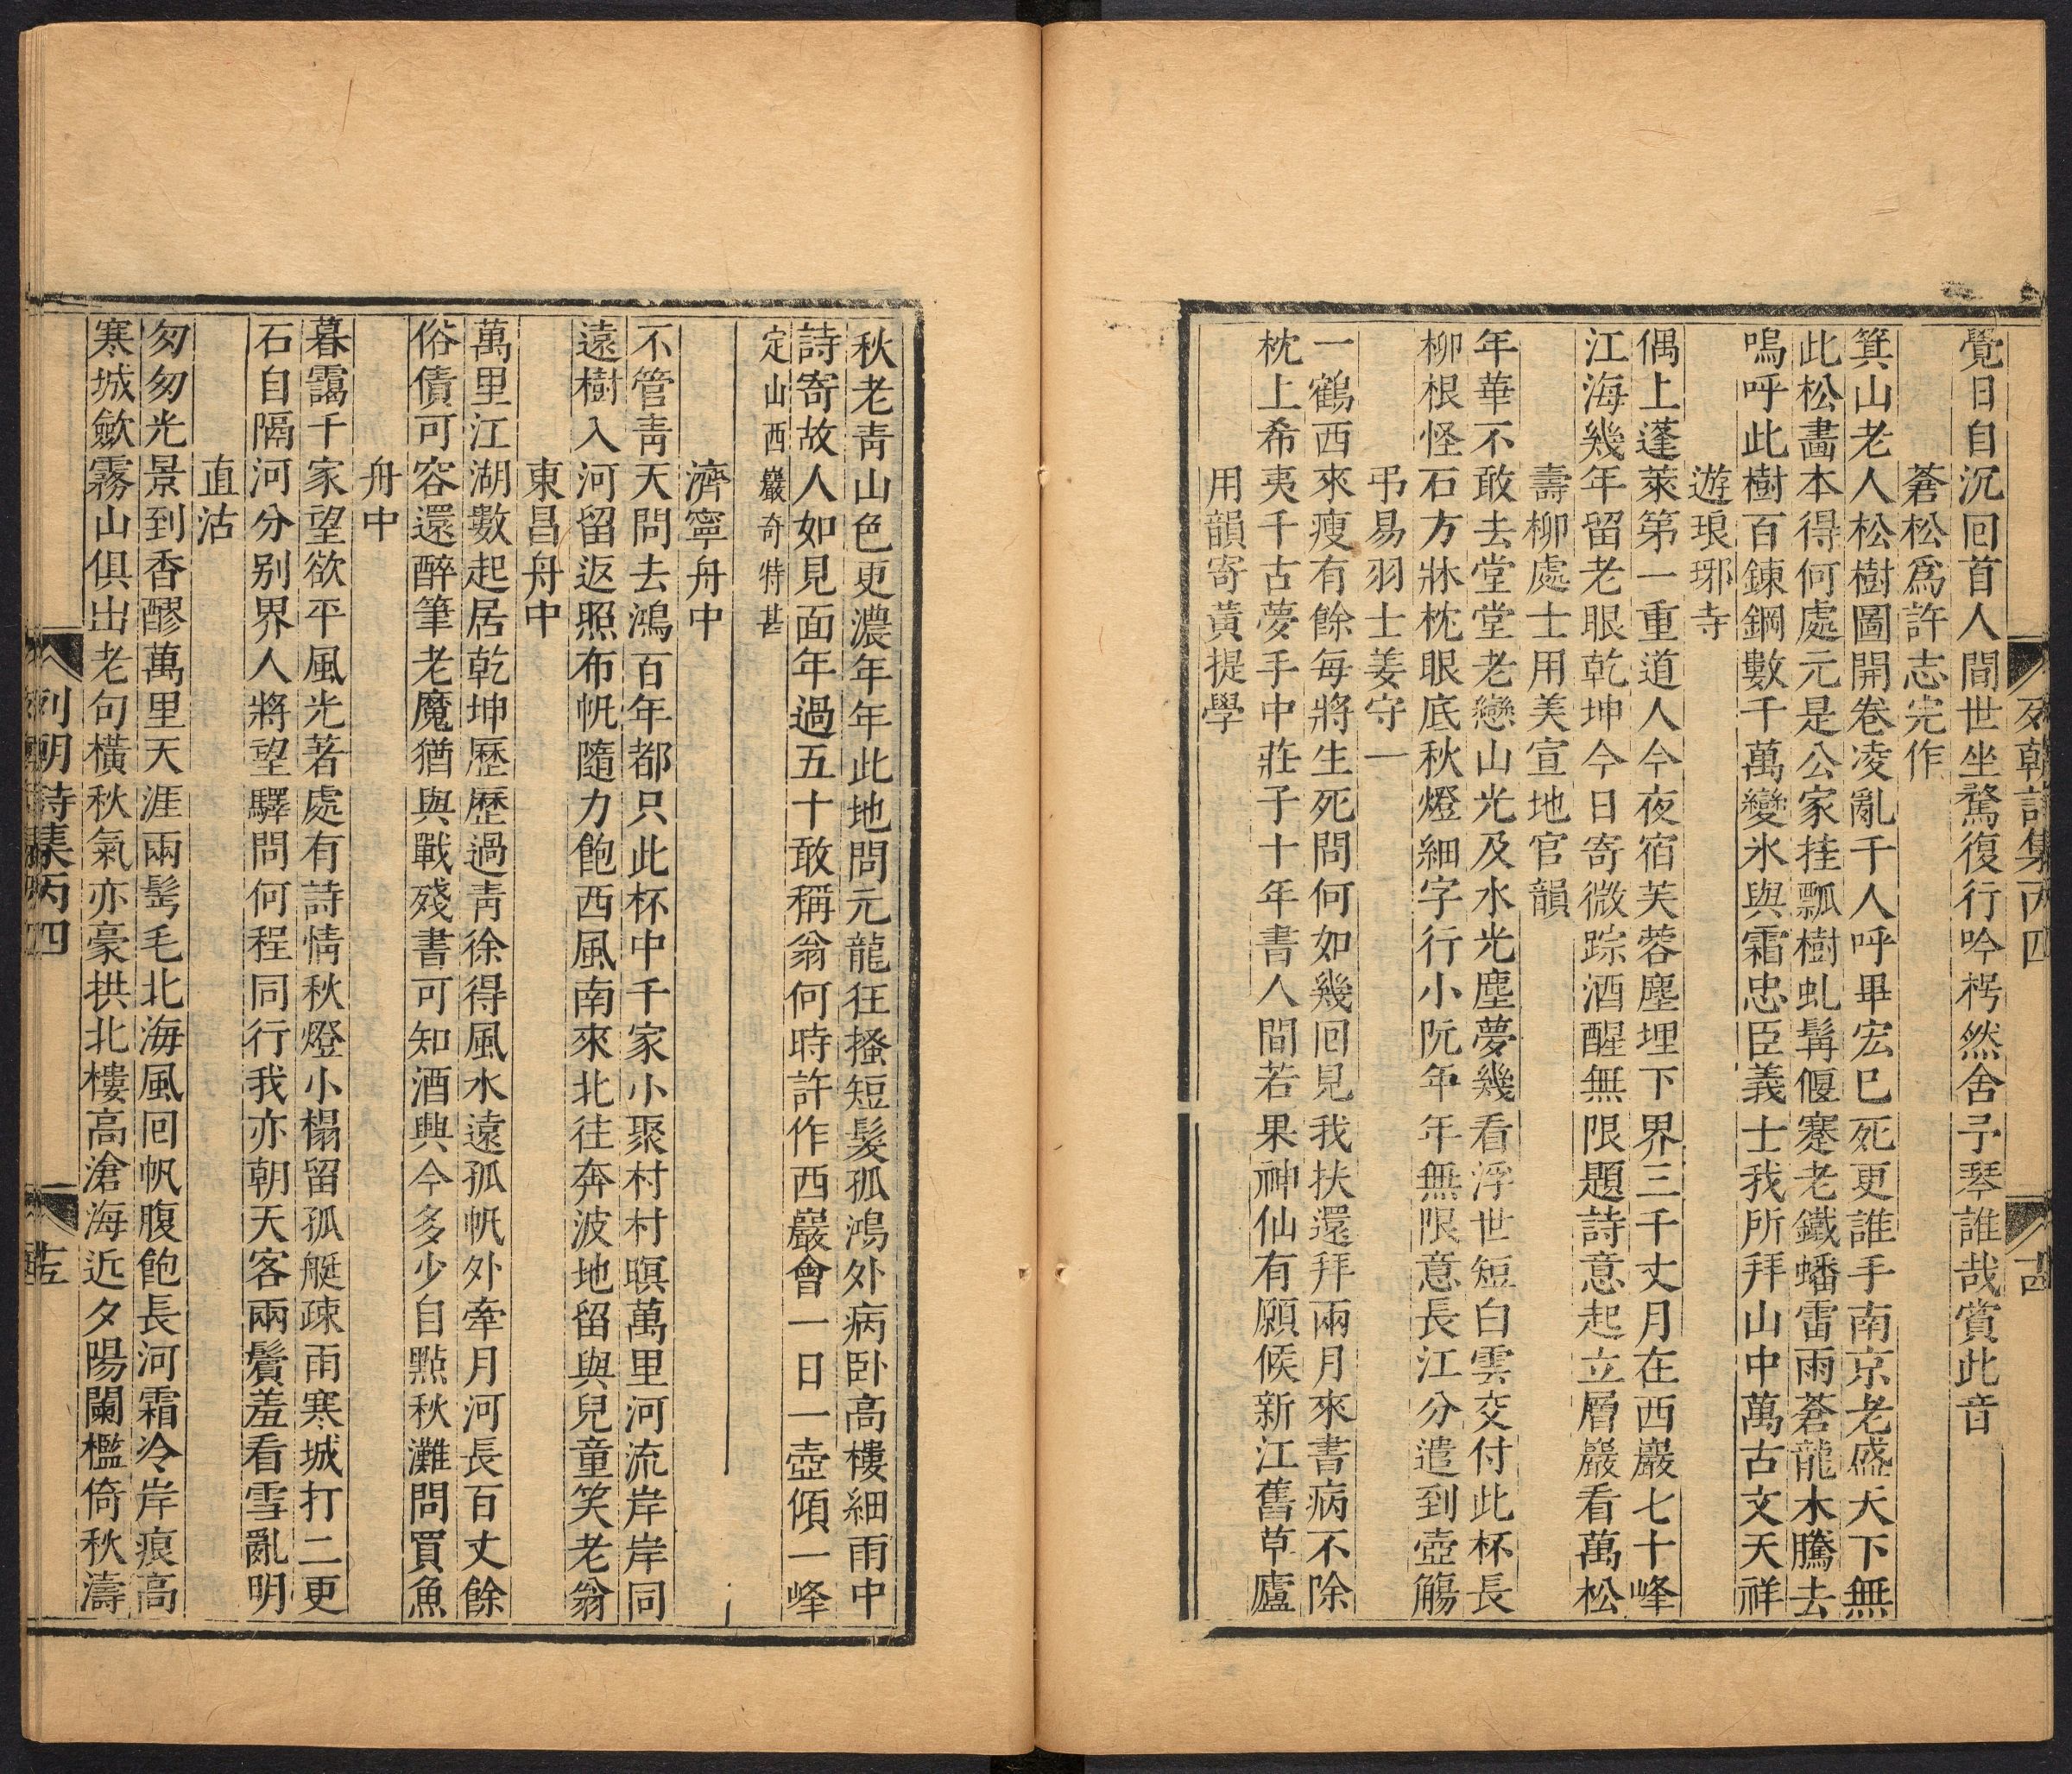 列朝詩集丙四
十四
覺日自沉回首人間世坐驚復行吟愕然舍予琴誰哉賞此音
蒼松爲許志完作
箕山老人松樹圖開卷凌亂千人呼畢宏已死更誰手南京老盛天下無
此松畵本得何處元是公家挂瓢樹虬髯偃蹇老鐵蟠雷雨蒼龍木騰去
嗚呼此樹百鍊鋼數千萬變氷與霜忠臣義士我所拜山中萬古文天祥
遊琅琊寺
偶上蓬萊第一重道人今夜宿芙蓉塵埋下界三千丈月在西巖七十峰
江海幾年留老眼乾坤今日寄微踪酒醒無限題詩意起立層巖看萬松
壽柳處士用美宣地官韻
年華不敢去堂堂老戀山光及水光塵夢幾看浮世短白雲交付此杯長
柳根怪石方牀枕眼底秋燈細字行小阮年年無限意長江分遣到壺觴
弔易羽士姜守一
一鶴西來瘦有餘每將生死問何如幾回見我扶還拜兩月來書病不除
枕上希夷千古夢手中莊子十年書人間若果神仙有願候新江舊草廬
用韻寄黃提學
秋老靑山色更濃年年此地問元龍狂搔短髮孤鴻外病卧高樓細雨中
詩寄故人如見面年過五十敢稱翁何時許作西巖會一日一壺傾一峰
定山西巖奇特甚
濟寧舟中
不管靑天問去鴻百年都只此杯中千家小聚村村暝萬里河流岸岸同
遠樹入河留返照布帆隨力飽西風南來北往奔波地留與兒童笑老翁
東昌舟中
萬里江湖數起居乾坤歷歷過靑徐得風水遠孤帆外牽月河長百丈餘
俗債可容還醉筆老魔猶與戰殘書可知酒興今多少自點秋灘問買魚
舟中
暮靄千家望欲平風光著處有詩情秋燈小榻留孤艇疎雨寒城打二更
石自隔河分别界人將望驛問何程同行我亦朝天客兩鬢羞看雪亂明
直沽
匆匆光景到香醪萬里天涯兩髩毛北海風回帆腹飽長河霜冷岸痕高
寒城歛霧山俱出老句橫秋氣亦豪拱北樓高滄海近夕陽闌檻倚秋濤
列朝詩集丙四
十五